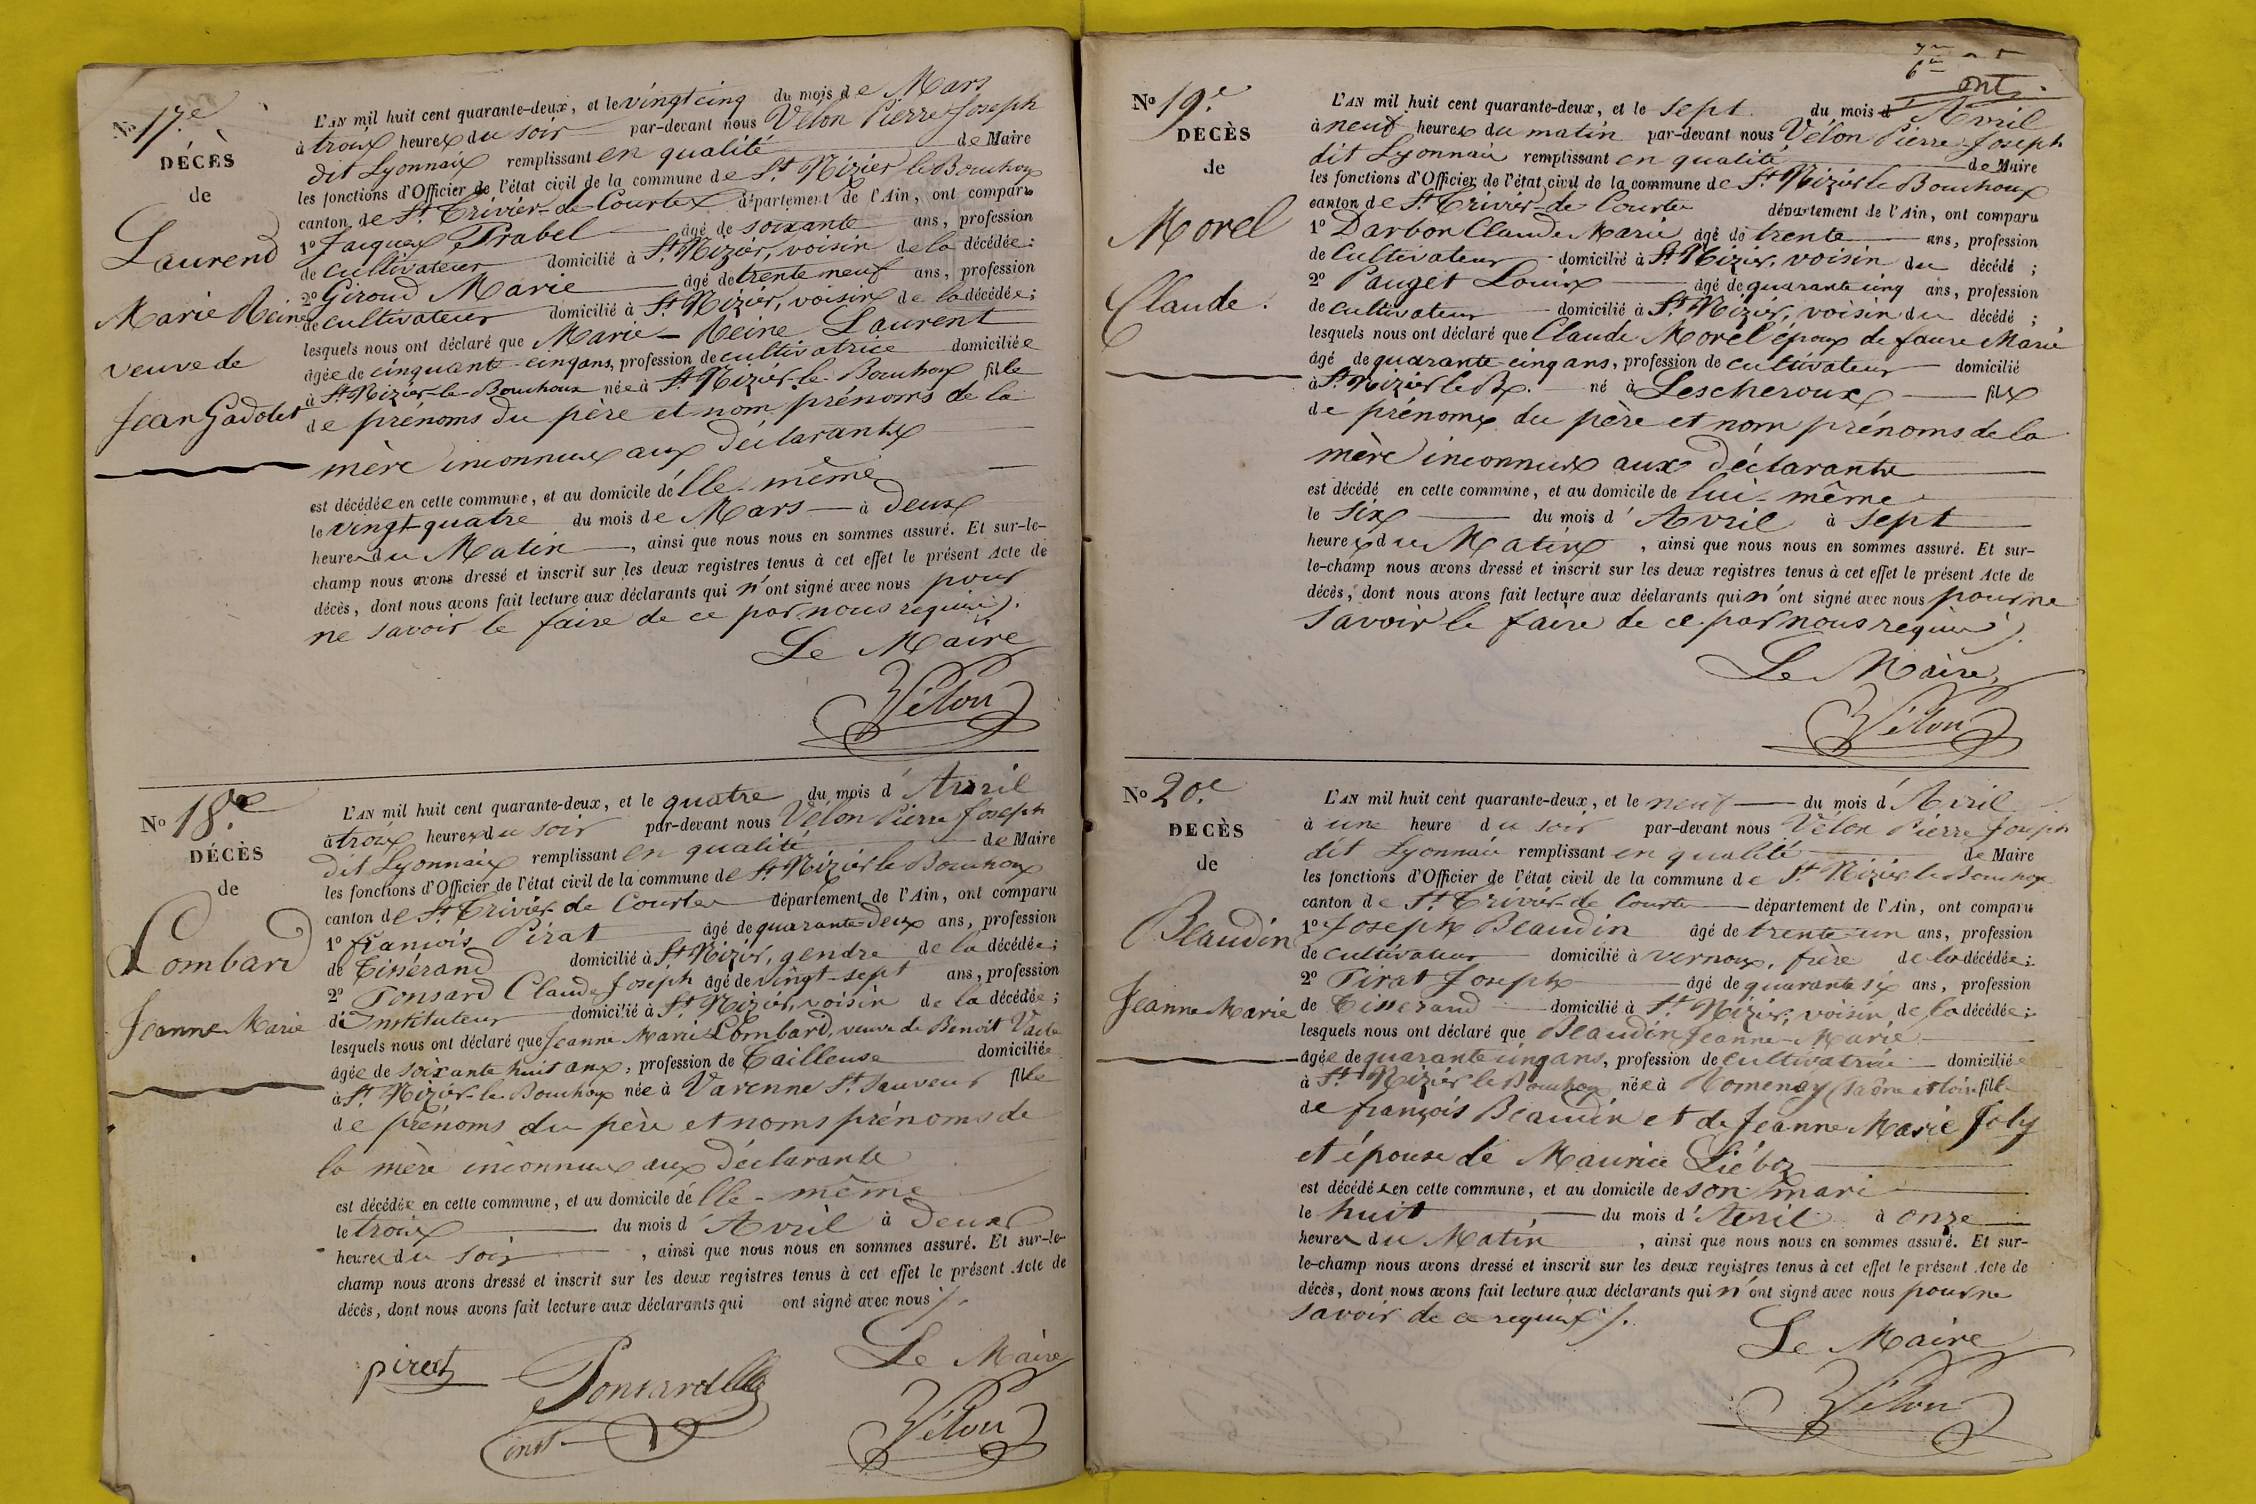 No 17.e
DÉCÈS
de
Laurend
Marie Reine
veuve de
Jean Gadolet
L'AN mil huit cent quarante-deux, et le vingt cinq du mois de Mars
à trois heures du soir par-devant nous Vélon Pierre Joseph
dit Lyonnais remplissant en qualité de Maire
les fonctions d'Officier de l'état civil de la commune de St. Nizier le Bouchoux
canton de St. Trivier-de-Courtes département de l'Ain, ont comparu
1o Jacques Prabel âgé de soixante ans, profession
de cultivateur domicilié à St. Nizier, voisin de la décédée;
2o Giroud Marie âgé de trente neuf ans, profession
de cultivateur domicilié à St. Nizier, voisin de la décédée;
lesquels nous ont déclaré que Marie-Reine Laurent
âgée de cinquante-cinq ans, profession de cultivatrice domiciliée
à St. Nizier-le-Bouchoux née à St. Nizier-le-Bouchoux fille
de prénoms du père et nom prénoms de la
mère inconnus aux déclarants
est décédée en cette commune, et au domicile d'élle même
le vingt-quatre du mois de Mars à deux
heures du Matin, ainsi que nous nous en sommes assuré. Et sur-le-
champ nous avons dressé et inscrit sur les deux registres tenus à cet effet le présent Acte de
décès, dont nous avons fait lecture aux déclarants qui n'ont signé avec nous pour
ne savoir le faire de ce par nous requis ./.
Le Maire
Vélon
No 18.e
DÉCÈS
de
Lombard
Jeanne Marie
L'AN mil huit cent quarante-deux, et le quatre du mois d'Avril
à trois heures du soir par-devant nous Vélon Pierre Joseph
dit Lyonnais remplissant en qualité de Maire
les fonctions d'Officier de l'état civil de la commune de St. Nizier le Bouchoux
canton de St. Trivier-de-Courtes département de l'Ain, ont comparu
1o françois Pirat âgé de quarante-deux ans, profession
de Tissérand domicilié à St. Nizier, gendre de la décédée;
2o Ponsard Claude Joseph âgé de vingt-sept ans, profession
d'Instituteur domicilié à St. Nizier, voisin de la décédée;
lesquels nous ont déclaré que Jeanne Marie Lombard, veuve de Benoit
âgée de soixante huit ans, profession de Tailleuse domiciliée
à St. Nizier-le-Bouchoux née à Varenne St. Sauveur fille
de prénoms du père et noms prénoms de
la mère inconnus aux déclarants
est décédée en cette commune, et au domicile d'élle-même
le trois du mois d'Avril à deux
heures du soir, ainsi que nous nous en sommes assuré. Et sur-le-
champ nous avons dressé et inscrit sur les deux registres tenus à cet effet le présent Acte de
décès, dont nous avons fait lecture aux déclarants qui ont signé avec nous ./.
Le Maire
pirat Ponsard
inst. Vélon
ont
No 19.e
DECÈS
de
Morel
Claude.
L'AN mil huit cent quarante-deux, et le sept du mois d'Avril
à neuf heures du matin par-devant nous Vélon Pierre Joseph
dit Lyonnais remplissant en qualité de Maire
les fonctions d'Officier de l'état civil de la commune de St. Nizier le Bouchoux
canton de St. Trivier-de-Courtes département de l'Ain, ont comparu
1o Darbon Claude Marie âgé de trente ans, profession
de Cultivateur domicilié à St. Nizier, voisin du décédé;
2o Pauget Louis âgé de quarante cinq ans, profession
de cultivateur domicilié à St. Nizier, voisin du décédé;
lesquels nous ont déclaré que Claude Morel époux de faure Marie
âgé de quarante-cinq ans, profession de cultivateur domicilié
à St. Nizier le Bx. né à Lescheroux fils
de prénoms du père et nom prénoms de la
mère inconnus aux déclarants
est décédé en cette commune, et au domicile de lui-même
le six du mois d'Avril à sept
heures du Matin, ainsi que nous nous en sommes assuré. Et sur-
le-champ nous avons dressé et inscrit sur les deux registres tenus à cet effet le présent Acte de
décès, dont nous avons fait lecture aux déclarants qui n'ont signé avec nous pour ne
savoir le faire de ce par nous requis ./.
Le Maire
Vélon
No 20.e
DECÈS
de
Beaudin
Jeanne Marie
L'AN mil huit cent quarante-deux, et le neuf du mois d'Avril
à une heure du soir par-devant nous Vélon Pierre Joseph
dit Lyonnais remplissant en qualité de Maire
les fonctions d'Officier de l'état civil de la commune de St. Nizier le Bouchoux
canton de St. Trivier-de-Courtes département de l'Ain, ont comparu
1o Joseph Beaudin âgé de trente-un ans, profession
de cultivateur domicilié à vernoux, frère de la décédée;
2o Pirat Joseph âgé de quarante six ans, profession
de Tisserand domicilié à St. Nizier, voisin de la décédée;
lesquels nous ont déclaré que Beaudin Jeanne-Marie
âgée de quarante cinq ans, profession de cultivatrice domiciliée
à St. Nizier le Bouchoux née à Romenay (Saône et Loire fille
de françois Beaudin et de Jeanne Marie Joly
et épouse de Maurice Liéboz
est décédée en cette commune, et au domicile de son mari
le huit du mois d'Avril à onze
heures du Matin, ainsi que nous nous en sommes assuré. Et sur-
le-champ nous avons dressé et inscrit sur les deux registres tenus à cet effet le présent Acte de
décès, dont nous avons fait lecture aux déclarants qui n'ont signé avec nous pour ne
savoir de ce requis ./.
Le Maire
Vélon